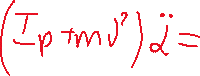 (I_p + m l²) α̈ =